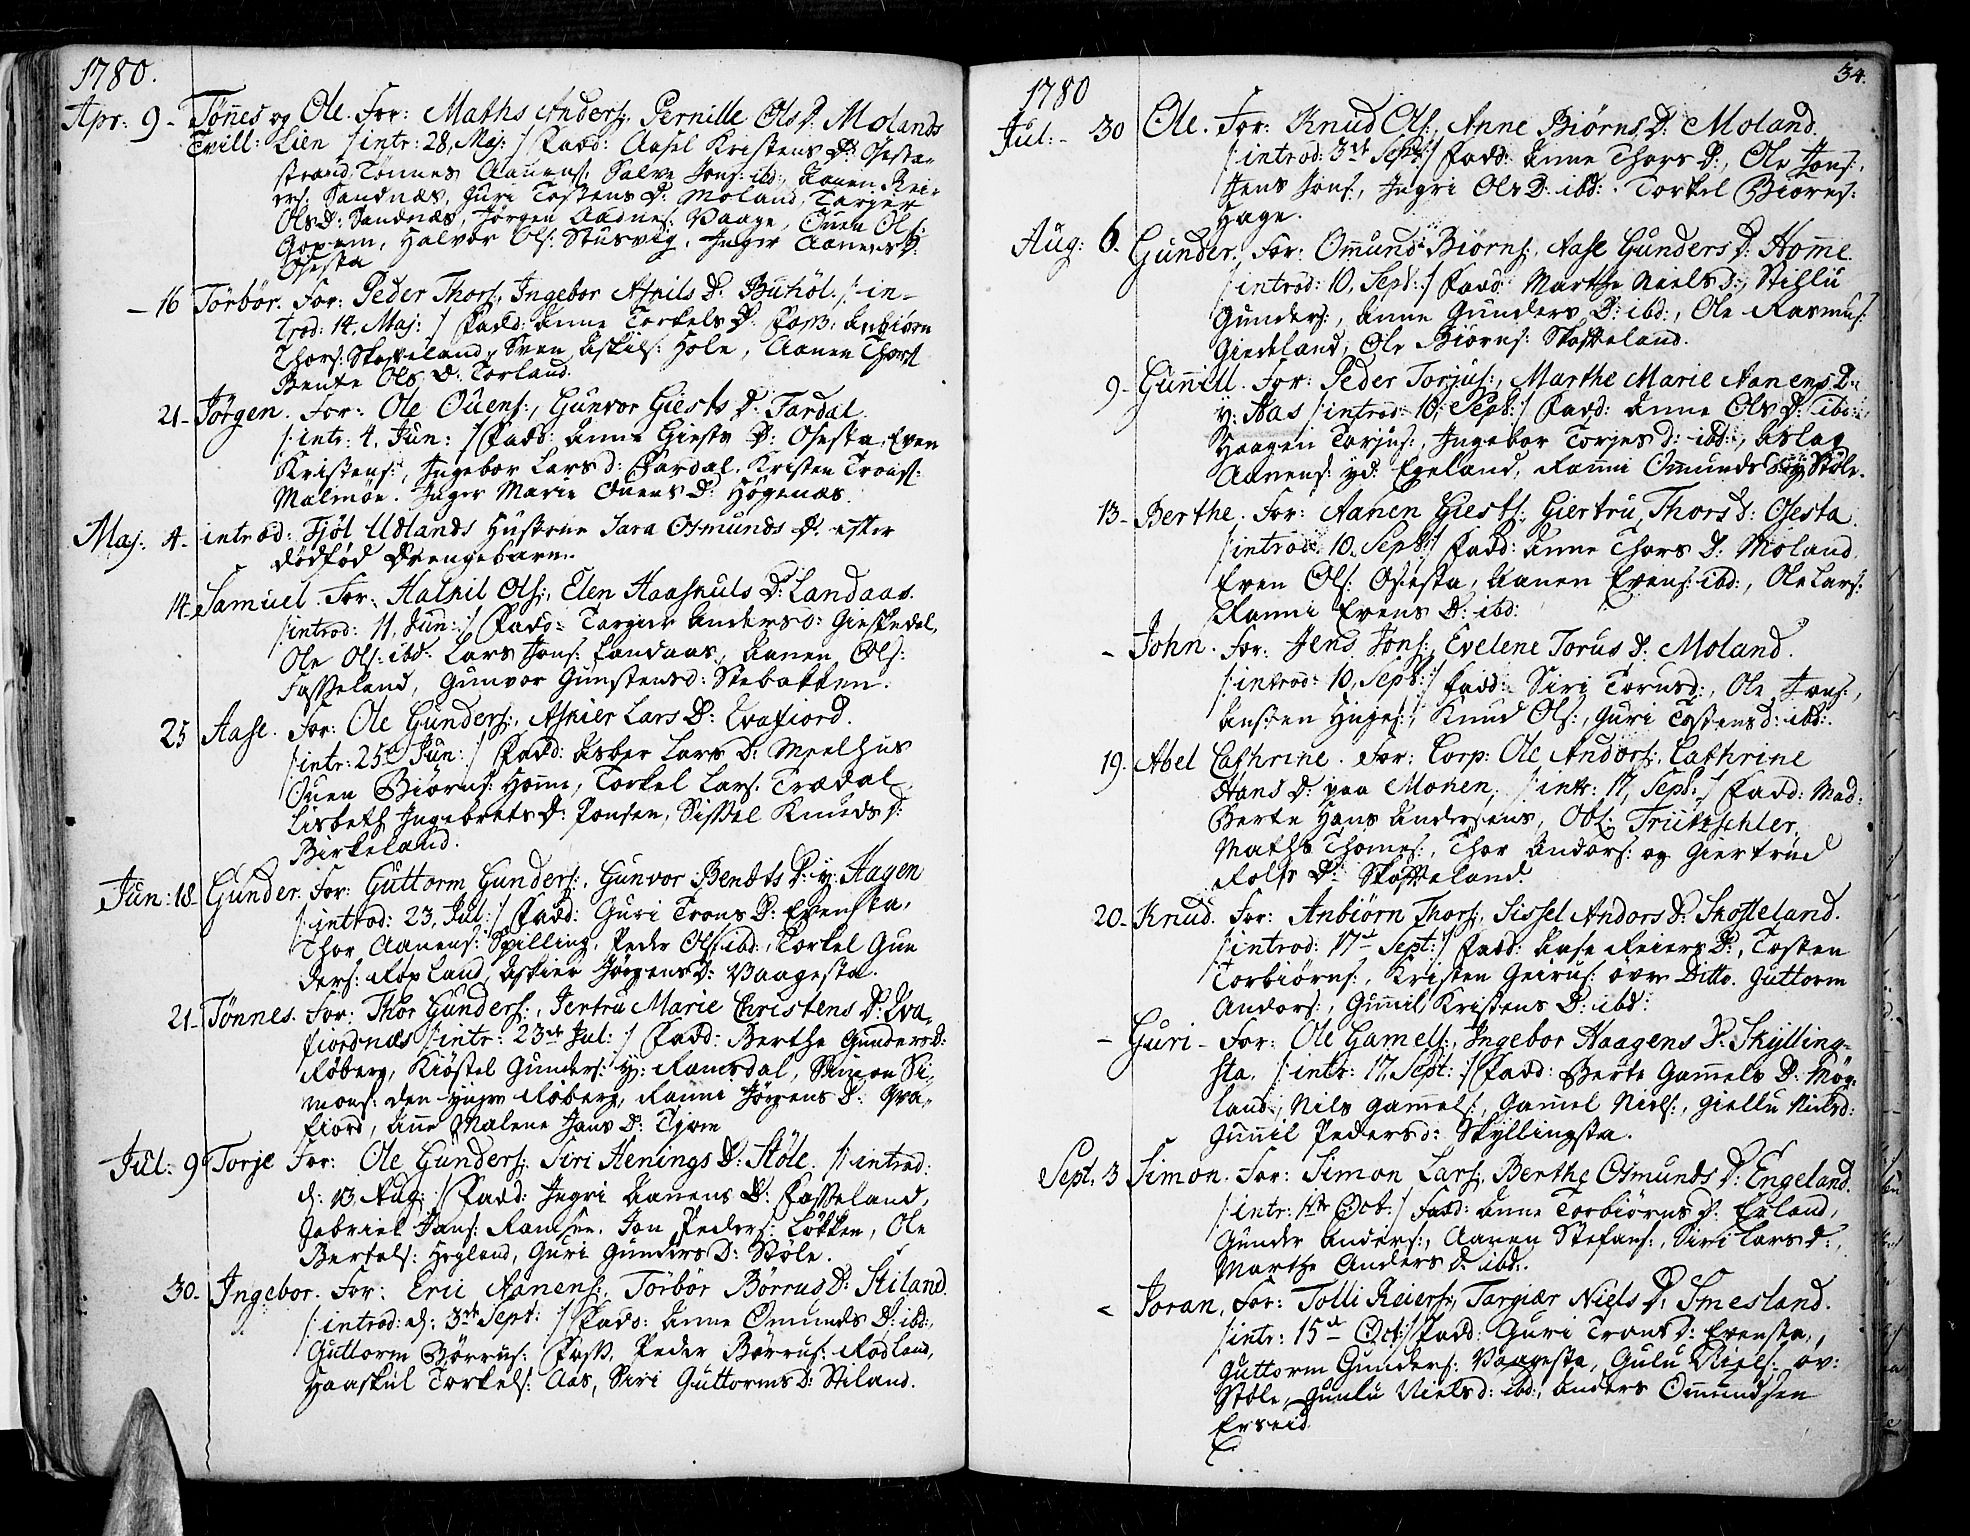 1780.
Apr: 9 - Tönnes og Ole. For: Maths Anders:, Pernille Ols D: Molands
Tvill: Lien /: intr: 28, Maj: :/ Fadd: Aasel Kristens D: Osesta-
strand, Tönnes Aanens:, Salve Jons: ibd:, Aanen Rei-
ers: Sandnæs, Guri Tostens D: Moland, Tarjer
Ols D: Sandnæs, Jörgen Aadnes: Vaage, Ouen Ols:
Halvor Ols: Stusvig, Inger Aanens D:
Osesta
- 16 Törbör. For: Peder Thors:, Ingebor Askils D: Buhöl. /: in-
trod: 14, Maj: :/ Fadd: Anne Torkels D: Foss: Anbiörn
Thors: Skofteland, Sven Askils: Hole, Aanen Thors:
Bente Ols D: Torland.
21 - Jörgen. For: Ole Ouens:, Gunvor Giests D: Fardal.
/: intr: 4, Jun: :/ Fadd: Anne Giests D: Osesta, Even
Kristens:, Ingebor Lars d: Fardal. Kristen Trons:
Malmöe. Inger Marie Ouens D: Högenæs.
Maj: 4 - introd: Fjöl Udlands Hustrue Sara Osmunds D: efter
dödfød Drengebarn.
14 - Samuel. For: Halkil Ols:, Elen Haaskuls D: Landaas.
/: introd: 11, Jun: :/ Fadd: Targier Anders D: Gieskedal,
Ole Ols: ibd: Lars Jons: Landaas, Aanen Ols:
Fasseland, Gunvor Gunstensd: Stebakken.
25 Aase. For: Ole Gunders:, Askier Lars D: Qvafiord.
/: intr: 25de Jun: :/ Fadd: Asber Lars D: Meelhus
Ouen Biörns: Home, Torkel Lars: Trædal
Lisbeth Ingebrets D: Ponsen, Sissel Knuds D:
Birkeland.
Jun: 18 - Gunder. For: Guttorm Gunders:, Gunvor Bendts D: y: Hagen
/: introd: 23, Jul: :/ Fadd: Guri Trons D: Evensta,
Thor Aanens: Spilling, Peder Ols: ibd:, Torkel Gun
ders: Röyland, Askier Jörgens D: Vaagesta.
21 - Tönnes. For: Thor Gunders:, Jertru Marie Christens D: Qva-
fiordnæs /: intr: 23de Jul: :/ Fadd: Berthe Gunders D:
Röberg, Kiöstel Gunders: y: Ramsdal, Simon Si-
mons: den yngre Röberg, Ranni Jörgens D: Qva-
fiord, Ane Malene Jans D: Tjom
Jul: 9 Torje For: Ole Gunders:, Siri Henings D: Støle. /: introd:
d: 13, Aug: :/ Fadd: Ingri Aanens D: Fasseland,
Gabriel Jans: Ramsøe. Jon Peders: Løkken, Ole
Bertels: Hegland, Guri Gunders D: Støle.
30 - Ingebor. For: Eric Aanens:, Törbör Börrus D: Stiland
/: introd: d: 3de Sept: :/ Fadd: Anne Omunds D: ibd:,
Guttorm Börrus: Foss, Peder Börrus: Rödland,
Haaskul Torkels: Aas, Siri Guttorms D: Stiland.
34.
1780
Jul: - 30 Ole. For: Knud Ols:, Anne Biörns D: Moland.
/: introd: 3de Sept: :/ Fadd: Anne Thors D:, Ole Jons:,
Jens Jons:, Ingri Ols D: ibd:. Torkel Biörns:
Hage.
Aug: 6. Gunder. For: Omund Biörns:, Aase Gunders D: Home.
/: introd: 10, Sept: :/ Fadd: Marthe Niels d:, Stihlu
Gunders:, Anne Gunders D: ibd:, Ole Rasmus:
Giedeland, Ole Biörns: Skofteland.
9 - Gunnill. For: Peder Torjus:, Marthe Marie Aanens D:
y: Aas /: introd: 10, Sept: :/ Fadd: Anne Ols D: ibd:,
Haagen Torjus:, Ingebor Torjus d: ibd:, Aslag
Aanens: yd: Egeland, Ranni Omunds D: y: Støle.
13 - Berthe. For: Aanen Giests:, Giertru Thors D: Osesta.
/: introd: 10, Sept: :/ Fadd: Anne Thors D: Moland.
Even Ols: Osesta, Aanen Evens: ibd:, Ole Lars:
Ranni Evens D: ibd:
- John. For: Jens Jons:, Evelene Torus D: Moland.
/: introd: 10, Sept: :/ Fadd: Siri Torusd:, Ole Jons:,
Ansten Huges:, Knud Ols:, Guri Tostens d: ibd:.
19. Abel Cathrine. For: Corp: Ole Andors:, Cathrine
Hans D: paa Monen, /: intr: 17, Sept: :/ Fadd: Mad:
Berte Hans Andersens, Obl: Triitzschler,
Maths Thomes:, Thor Andors: og Giertrud
Rolfs D: Skofteland.
20 - Knud. For: Anbiörn Thors:, Sissel Andors D: Skofteland.
/: introd: 17de Sept: :/ Fadd: Aase Reiers D:, Tosten
Torbiörns:, Kristen Geirus: övre Ditto. Guttorm
Andors:, Gunnil Kristens D: ibd:
- Guri - For: Ole Gamels:, Ingebor Haagens D: Skylling-
sta. /: intr: 17, Sept: :/ Fadd: Berte Gamels D: Møg-
land, Nils Gamels:, Gamel Niels:, Giellu Nielsd:
Gunnil Peders d: Skyllingsta.
Sept. 3 Simon. For: Simon Lars:, Berthe Osmunds D: Engeland.
/: intr: 1ste Oct: :/ Fadd: Anne Torbiörns D: Erland,
Gunder Anders:, Aanen Stefans:, Siri Lars D:,
Marthe Anders D: ibd:.
- Joran. For: Tolli Reiers:, Targiær Niels D: Smesland.
/: intr: 15de Oct: :/ Fadd: Guri Trons D: Evensta,
Guttorm Gunders: Vaagesta, Gulu Niels: öv:
Støle, Gunlu Niels d: ibd:, Anders Omundsen
Erseid.